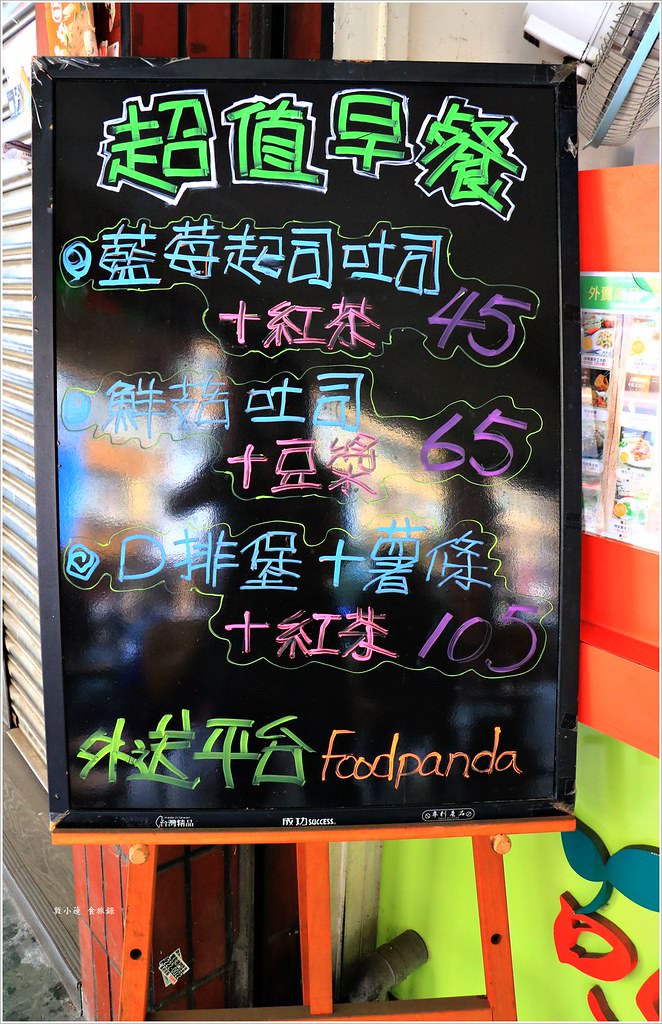 超值早餐
藍莓起司吐司
+紅茶 45
鮮菇吐司
+豆漿 65
D排堡+薯條
+紅茶 105
外送平台 Foodpanda
台灣精品
成功 SUCCESS.
專利產品
外賣
食旅錄